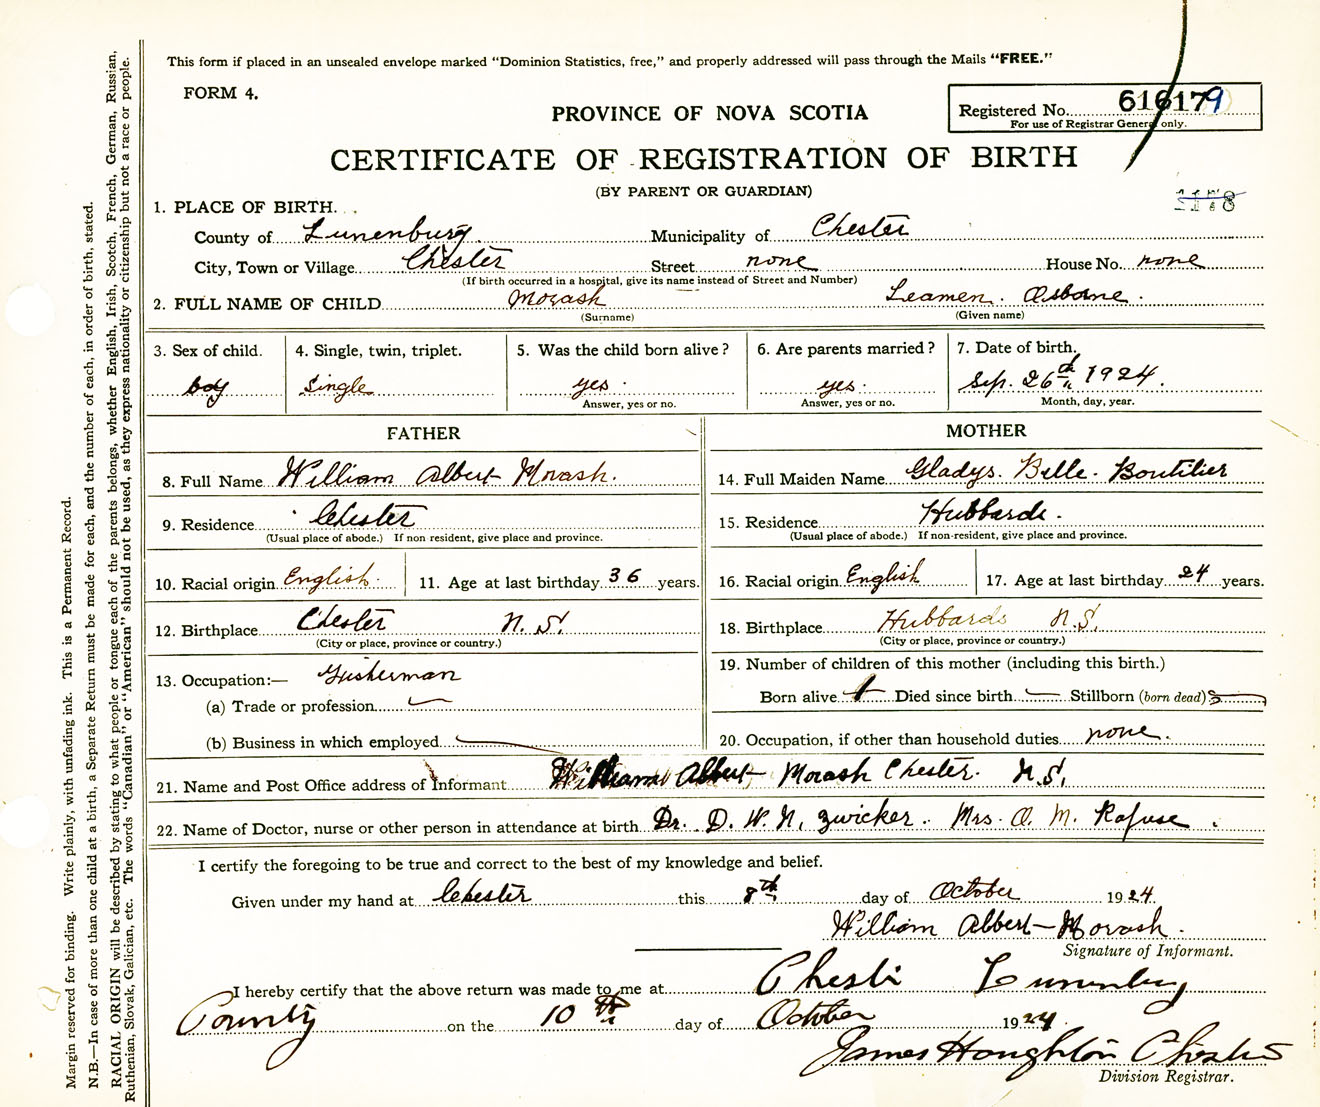 This form if placed in an unsealed envelope marked "Dominion Statistics, free," and properly addressed will pass through the Mails "FREE."
FORM 4.
PROVINCE OF NOVA SCOTIA
Registered No. 616179
For use of Registrar General only.
CERTIFICATE OF REGISTRATION OF BIRTH
(BY PARENT OR GUARDIAN)
1178
1. PLACE OF BIRTH.
County of Lunenburg Municipality of Chester
City, Town or Village Chester Street none House No. none
(If birth occurred in a hospital, give its name instead of Street and Number)
2. FULL NAME OF CHILD Morash Leamen. Osborne.
(Surname) (Given name)
3. Sex of child. 4. Single, twin, triplet. 5. Was the child born alive? 6. Are parents married? 7. Date of birth.
boy Single yes. yes. Sep. 26th 1924.
Answer, yes or no. Answer, yes or no. Month, day, year.
FATHER MOTHER
8. Full Name William Albert Morash. 14. Full Maiden Name Gladys. Belle. Boutilier
9. Residence Chester 15. Residence Hubbards.
(Usual place of abode.) If non resident, give place and province. (Usual place of abode.) If non-resident, give place and province.
10. Racial origin English. 11. Age at last birthday 36 years. 16. Racial origin English 17. Age at last birthday 24 years.
12. Birthplace Chester N.S. 18. Birthplace Hubbards N.S.
(City or place, province or country.) (City or place, province or country.)
13. Occupation:— Fisherman 19. Number of children of this mother (including this birth.)
(a) Trade or profession Born alive 1 Died since birth Stillborn (born dead)
(b) Business in which employed 20. Occupation, if other than household duties none.
21. Name and Post Office address of Informant William Albert Morash Chester. N.S.
22. Name of Doctor, nurse or other person in attendance at birth Dr. D. W. N. Zwicker. Mrs. O. M. Rafuse.
I certify the foregoing to be true and correct to the best of my knowledge and belief.
Given under my hand at Chester this 8th day of October 1924.
William Albert Morash.
Signature of Informant.
I hereby certify that the above return was made to me at Chester Lunenburg
County on the 10th day of October 1924.
James Houghton Chester
Division Registrar.
Margin reserved for binding. Write plainly, with unfading ink. This is a Permanent Record.
N.B.—In case of more than one child at a birth, a Separate Return must be made for each, and the number of each, in order of birth, stated.
RACIAL ORIGIN will be described by stating to what people or tongue each of the parents belongs, whether English, Irish, Scotch, French, German, Russian,
Ruthenian, Slovak, Galician, etc. The words "Canadian" or "American" should not be used, as they express nationality or citizenship but not a race or people.